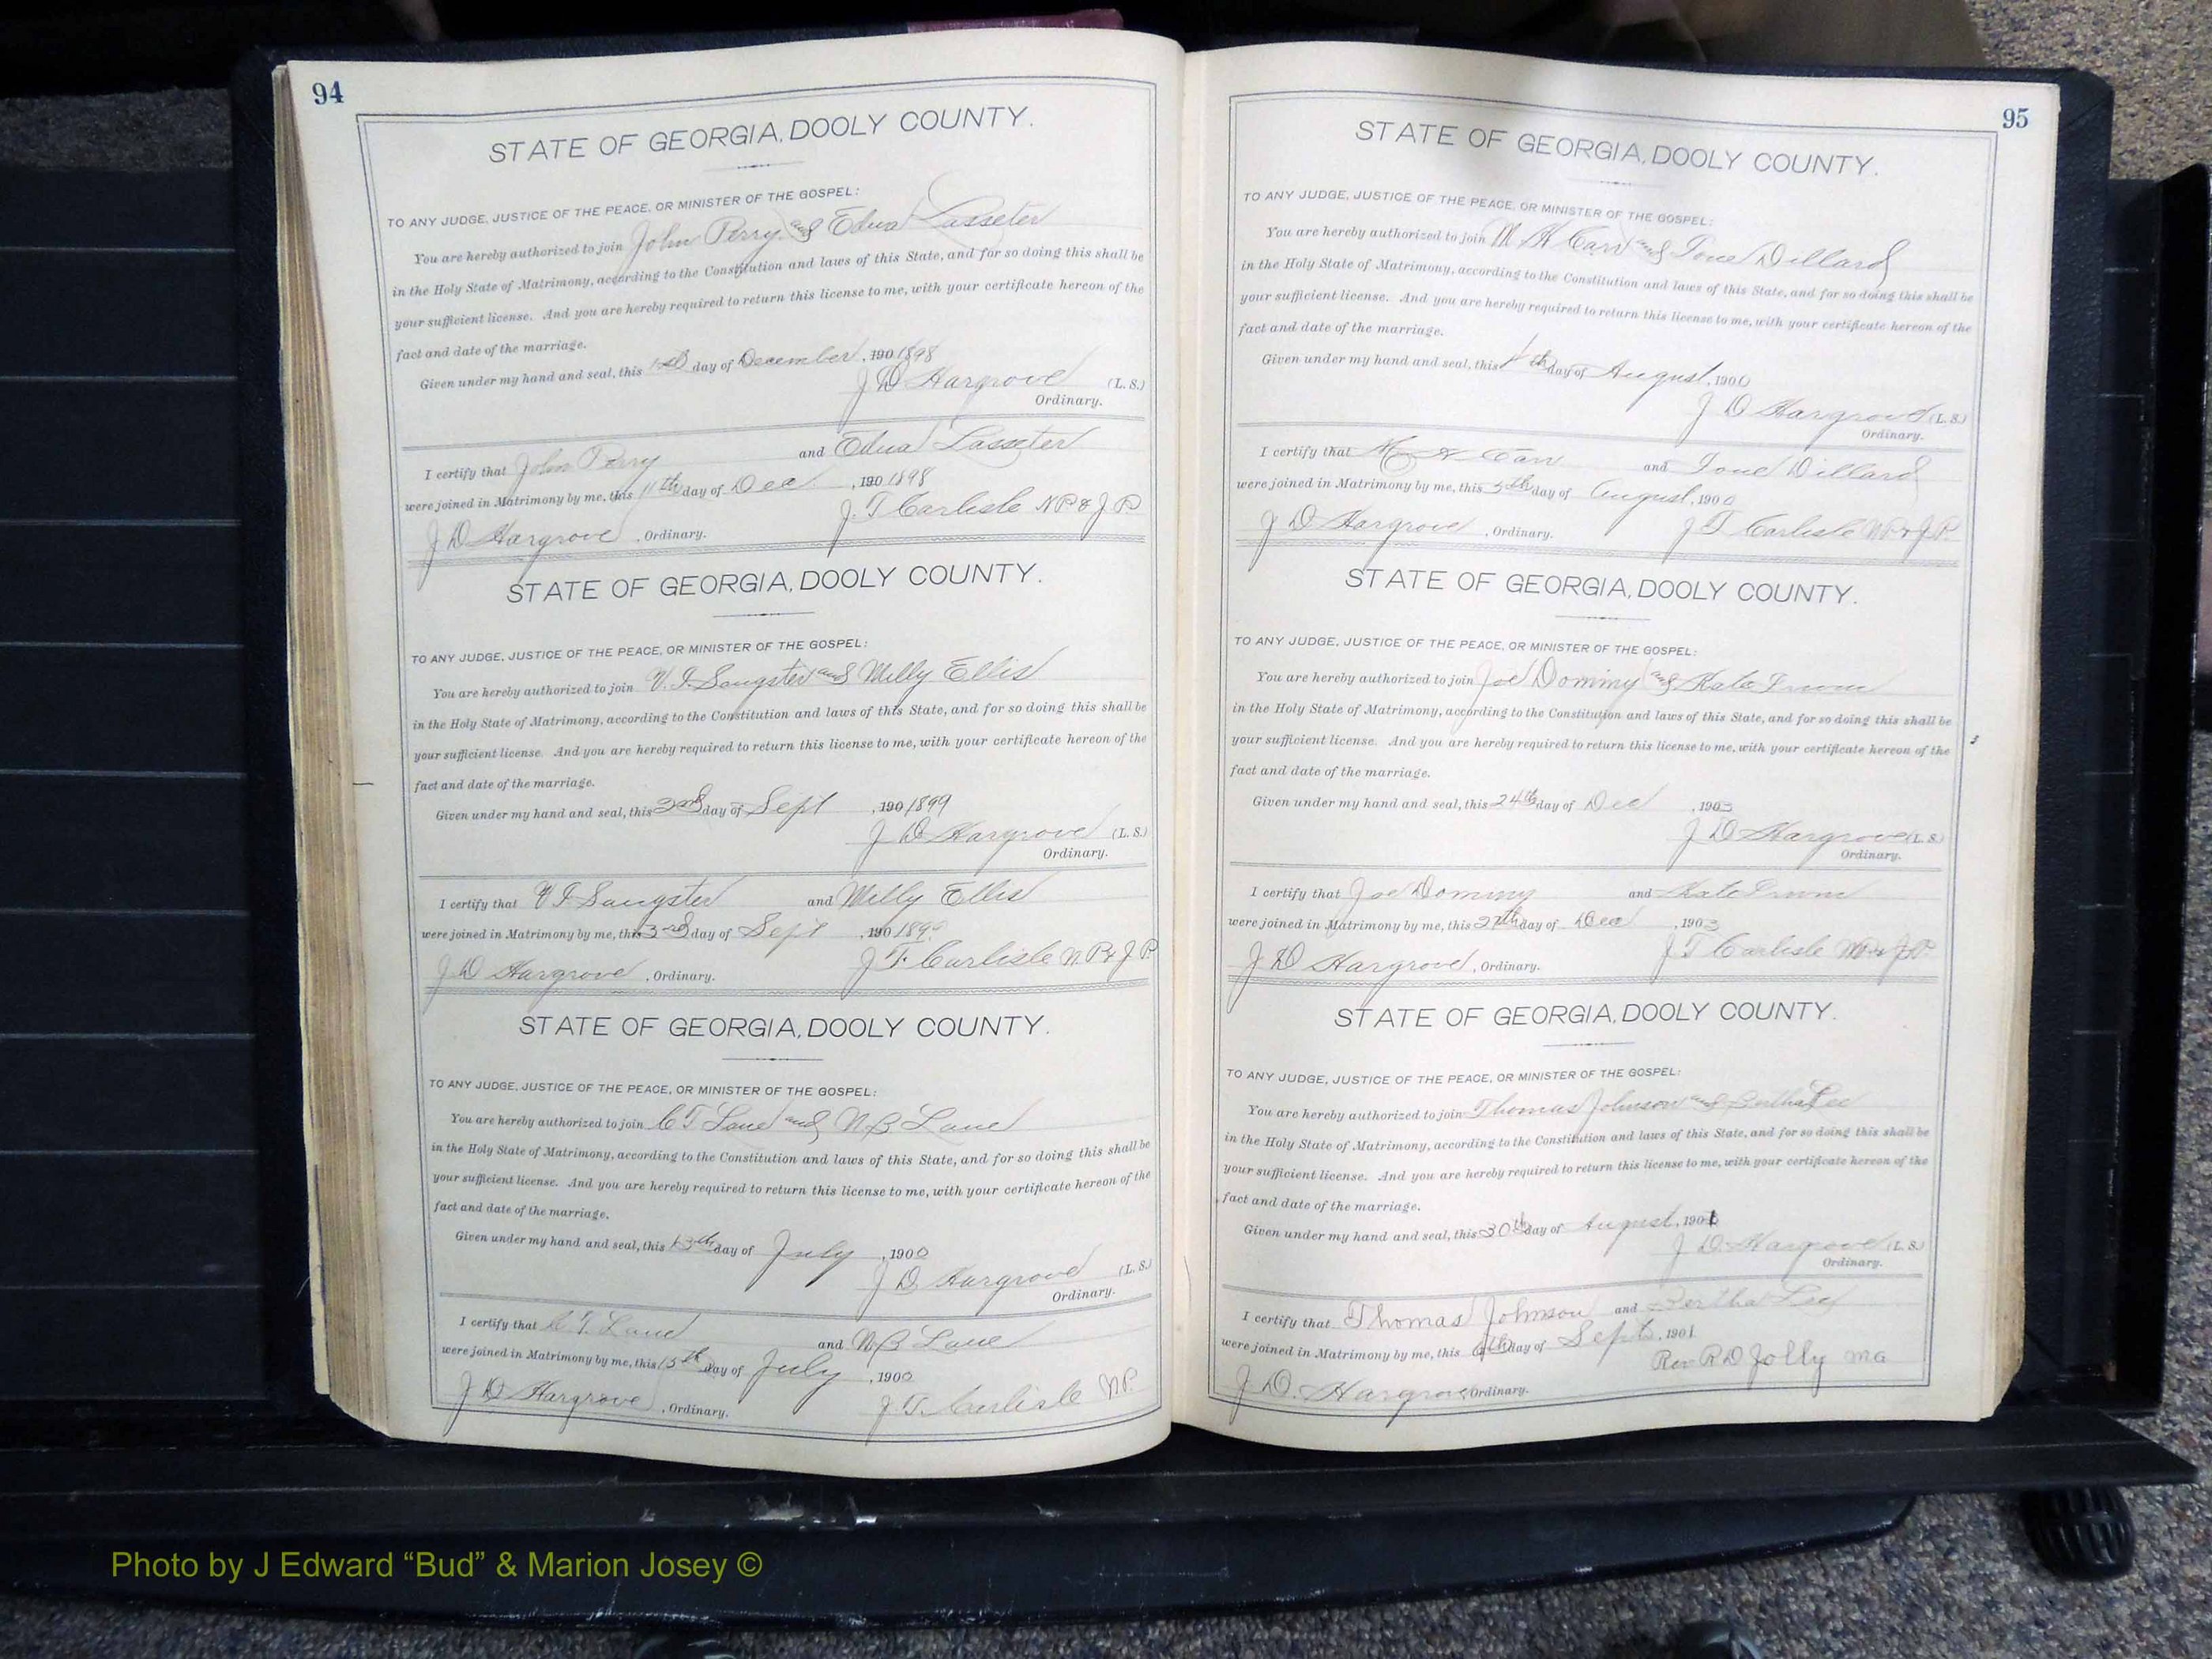 94
STATE OF GEORGIA, DOOLY COUNTY.
TO ANY JUDGE, JUSTICE OF THE PEACE, OR MINISTER OF THE GOSPEL:
You are hereby authorized to join John Perry and Edna Lasseter
in the Holy State of Matrimony, according to the Constitution and laws of this State, and for so doing this shall be
your sufficient license. And you are hereby required to return this license to me, with your certificate hereon of the
fact and date of the marriage.
Given under my hand and seal, this day of December, 190 1898
J D Hargrove (L. S.)
Ordinary.
I certify that John Perry and Edna Lasseter
were joined in Matrimony by me, this 11th day of Dec , 190 1898
J. T Carlisle NP & J P.
J D Hargrove , Ordinary.
STATE OF GEORGIA, DOOLY COUNTY.
TO ANY JUDGE, JUSTICE OF THE PEACE, OR MINISTER OF THE GOSPEL:
You are hereby authorized to join V. I. Sangster and Milly Ellis
in the Holy State of Matrimony, according to the Constitution and laws of this State, and for so doing this shall be
your sufficient license. And you are hereby required to return this license to me, with your certificate hereon of the
fact and date of the marriage.
Given under my hand and seal, this 2nd day of Sept , 190 1899
J D Hargrove (L. S.)
Ordinary.
I certify that V I Sangster and Milly Ellis
were joined in Matrimony by me, this 3rd day of Sept , 190 1899
J T. Carlisle N. P & J P.
J D Hargrove , Ordinary.
STATE OF GEORGIA, DOOLY COUNTY.
TO ANY JUDGE, JUSTICE OF THE PEACE, OR MINISTER OF THE GOSPEL:
You are hereby authorized to join C T Lane and N B Lane
in the Holy State of Matrimony, according to the Constitution and laws of this State, and for so doing this shall be
your sufficient license. And you are hereby required to return this license to me, with your certificate hereon of the
fact and date of the marriage.
Given under my hand and seal, this 13th day of July , 1900
J D Hargrove (L. S.)
Ordinary.
I certify that C T. Lane and N B Lane
were joined in Matrimony by me, this 15th day of July , 1900
J. T. Carlisle N. P.
J D Hargrove , Ordinary.
95
STATE OF GEORGIA, DOOLY COUNTY.
TO ANY JUDGE, JUSTICE OF THE PEACE, OR MINISTER OF THE GOSPEL:
You are hereby authorized to join M H Carr and Ione Dillard
in the Holy State of Matrimony, according to the Constitution and laws of this State, and for so doing this shall be
your sufficient license. And you are hereby required to return this license to me, with your certificate hereon of the
fact and date of the marriage.
Given under my hand and seal, this day of August, 1900
J D Hargrove (L. S.)
Ordinary.
I certify that M H Carr and Ione Dillard
were joined in Matrimony by me, this 5th day of August, 1900
J T Carlisle NP & J. P.
J D Hargrove , Ordinary.
STATE OF GEORGIA, DOOLY COUNTY.
TO ANY JUDGE, JUSTICE OF THE PEACE, OR MINISTER OF THE GOSPEL:
You are hereby authorized to join Joe Dominy and Kate
in the Holy State of Matrimony, according to the Constitution and laws of this State, and for so doing this shall be
your sufficient license. And you are hereby required to return this license to me, with your certificate hereon of the
fact and date of the marriage.
Given under my hand and seal, this 24th day of Dec , 1903
J D Hargrove (L. S.)
Ordinary.
I certify that Joe Dominy and Kate
were joined in Matrimony by me, this 27th day of Dec , 1903
J T Carlisle NP & J. P.
J D Hargrove , Ordinary.
STATE OF GEORGIA, DOOLY COUNTY.
TO ANY JUDGE, JUSTICE OF THE PEACE, OR MINISTER OF THE GOSPEL:
You are hereby authorized to join Thomas Johnson and Bertha Lee
in the Holy State of Matrimony, according to the Constitution and laws of this State, and for so doing this shall be
your sufficient license. And you are hereby required to return this license to me, with your certificate hereon of the
fact and date of the marriage.
Given under my hand and seal, this 30th day of August, 1901
J D. Hargrove (L. S.)
Ordinary.
I certify that Thomas Johnson and Bertha Lee
were joined in Matrimony by me, this day of Sept, 1901
Rev R D Jolly MG
J D. Hargrove Ordinary.
Photo by J Edward “Bud” & Marion Josey ©